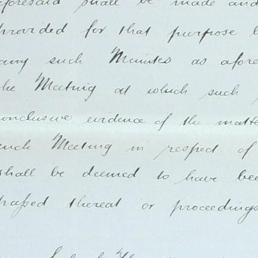 aforesaid shall be made and
provided for that purpose
any such Minutes as afore
the Meeting at which such
conclusive evidence of the matte
such Meeting in respect of
shall be deemed to have bee
passed thereat or proceedings